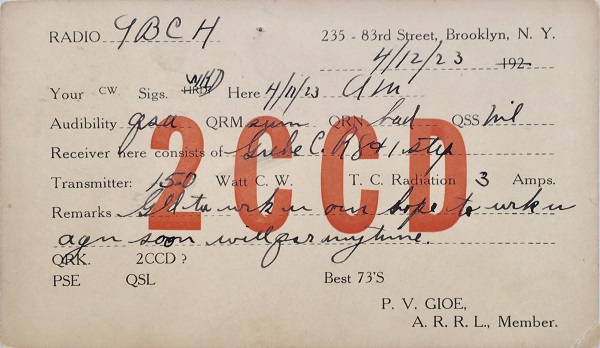 RADIO 9BCH 235 - 83rd Street, Brooklyn, N. Y.
4/12/23 192
Your CW Sigs. WKD Here 4/11/23 am
Audibility qsa QRM sum QRN bad QSS nil
Receiver here consists of Grebe C.R 8 & 1 step
Transmitter: 150 Watt C. W. T. C. Radiation 3 Amps.
Remarks Gld to wrk u om hope to wrk u
agn soon will qsr anytime.
QRK. 2CCD ?
PSE QSL Best 73'S
P. V. GIOE,
A. R. R. L., Member.
2CCD